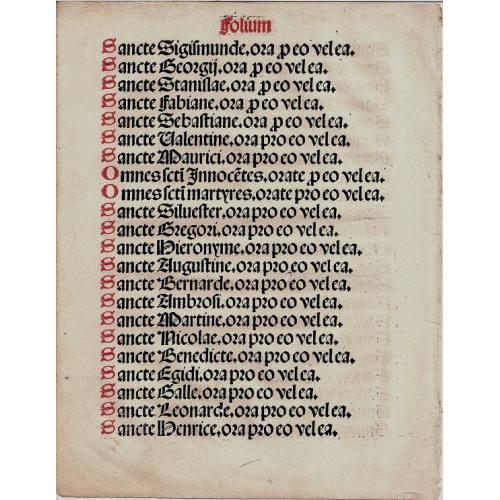 Folium
Sancte Sigismunde, ora ꝓ eo vel ea.
Sancte Georgij, ora ꝓ eo vel ea.
Sancte Stanislae, ora ꝓ eo vel ea.
Sancte Fabiane, ora ꝓ eo vel ea.
Sancte Sebastiane, ora ꝓ eo vel ea.
Sancte Ualentine, ora pro eo vel ea.
Sancte Maurici, ora pro eo vel ea.
Omnes sctī Innocētes, orate ꝓ eo vel ea.
Omnes sctī martyres, orate pro eo vel ea.
Sancte Siluester, ora pro eo vel ea.
Sancte Gregori, ora pro eo vel ea.
Sancte Hieronyme, ora pro eo vel ea.
Sancte Augustine, ora pro eo vel ea.
Sancte Bernarde, ora pro eo vel ea.
Sancte Ambrosi, ora pro eo vel ea.
Sancte Martine, ora pro eo vel ea.
Sancte Nicolae, ora pro eo vel ea.
Sancte Benedicte, ora pro eo vel ea.
Sancte Egidi, ora pro eo vel ea.
Sancte Galle, ora pro eo vel ea.
Sancte Leonarde, ora pro eo vel ea.
Sancte Henrice, ora pro eo vel ea.